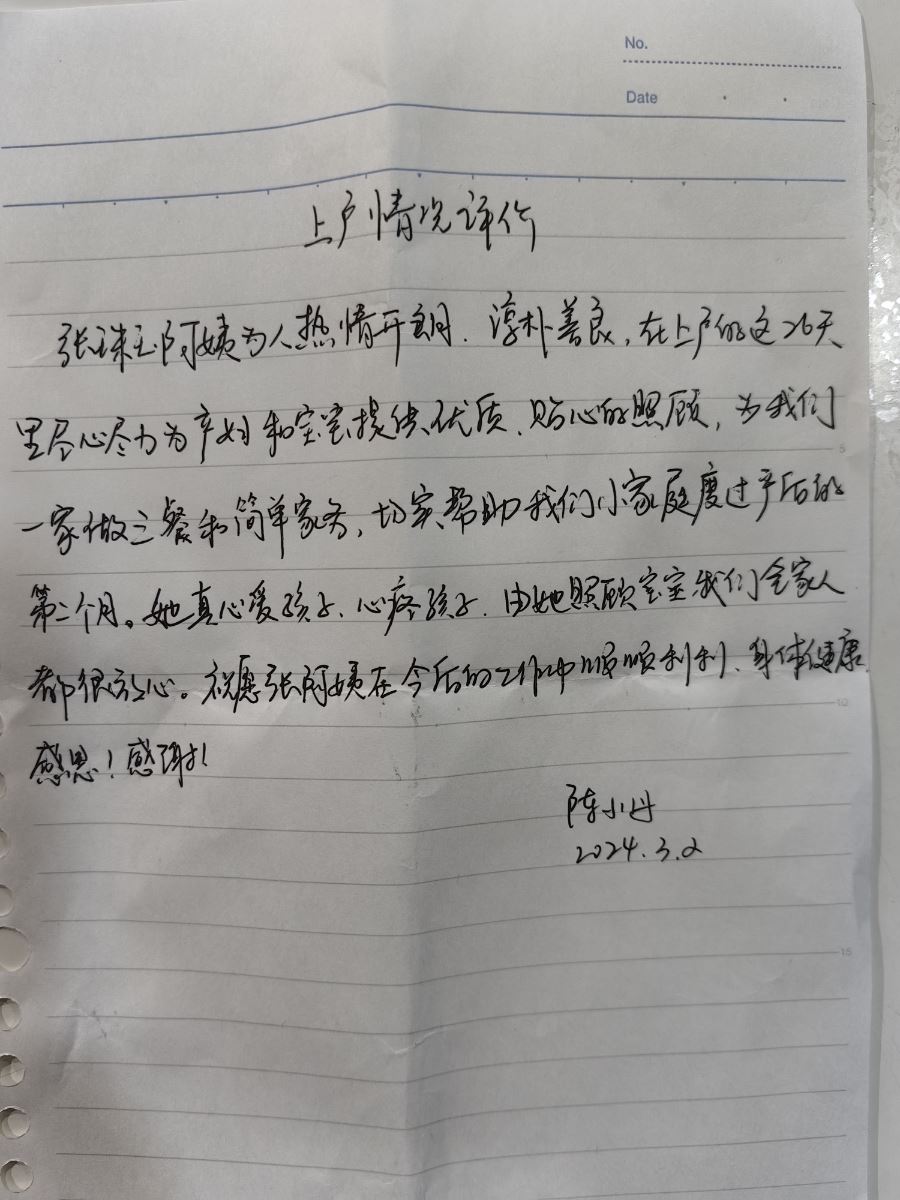 No.
Date
上户情况评价
张珠玉阿姨为人热情开朗、淳朴善良，在上户的这26天
里尽心尽力为产妇和宝宝提供优质、贴心的照顾，为我们
一家做三餐和简单家务，切实帮助我们小家庭度过产后的
第二个月。她真心爱孩子、心疼孩子、由她照顾宝宝我们全家人
都很放心。祝愿张阿姨在今后的工作中顺顺利利、身体健康
感恩！感谢！
陈小丹
2024.3.2
5
10
15